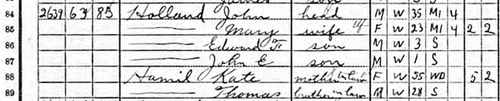 84 2639 63 85 Holland John head M W 35 M1 4
85 —— Mary wife F W 23 M1 4 2 2
86 —— Edward F son M W 3 S
87 —— John E son M W 1 S
88 Hamil Kate mother in law F W 55 WD 5 2
89 —— Thomas brother in law M W 28 S